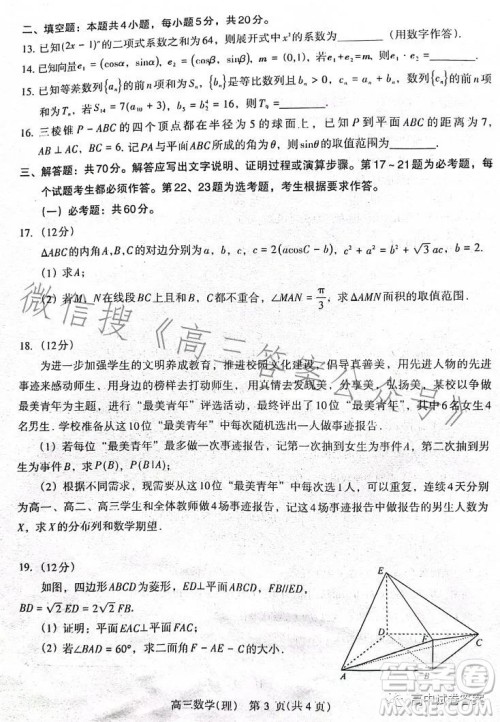 二、填空题：本题共4小题，每小题5分，共20分。
13. 已知(2x-1)ⁿ的二项式系数之和为64，则展开式中x³的系数为______（用数字作答）.
14. 已知向量e₁=(cosα, sinα), e₂=(cosβ, sinβ), m=(0,1), 若
15. 已知等差数列{aₙ}的前n项和为Sₙ，数列{bₙ}是等比数列且bₙ>0，
和为Tₙ. 若S₁₄=7(a₁₀+3), b₅=b₂⁴=16, 则Tₙ=______.
16. 三棱锥P-ABC的四个顶点都在半径为5的球面上，已知P到平面ABC的距离为7,
AB⊥AC, BC=6. 记PA与平面ABC所成的角为θ，则sinθ的取值范围为______.
三、解答题：共70分。解答应写出文字说明、证明过程或演算步骤。第17~21题为必考题，每
个试题考生都必须作答。第22、23题为选考题，考生根据要求作答。
（一）必考题：共60分。
17.（12分）
△ABC的内角A, B, C的对边分别为a, b, c. 2=2(acosC-b), c²+a²=b²+√3ac, b=2.
（1）求A；
（2）若M、N在线段BC上且和B、C都不重合，∠MAN=π/3，求△AMN面积的取值范围.
18.（12分）
为进一步加强学生的文明养成教育，推进校园文化建设，倡导真善美，用先进人物的先进
事迹来感动师生，用身边的榜样去打动师生，用真情去发现美，分享美，弘扬美，某校以争做
最美青年为主题，进行“最美青年”评选活动，最终评出了10位“最美青年”，其中6名女生4
名男生。学校准备从这10位“最美青年”中每次随机选一人做事迹报告。
（1）若每位“最美青年”最多做一次事迹报告，记第一次抽到女生为事件A，第二次抽到男
生为事件B，求P(B|A)；
（2）根据不同需求，现需要从这10位“最美青年”中每次选1人，可以重复，连续4天分别
为高一、高二、高三学生和全体教师做4场事迹报告，记这4场事迹报告中做报告的男生人数为
X，求X的分布列和数学期望.
19.（12分）
如图，四边形ABCD为菱形，ED⊥平面ABCD, FB//ED,
BD=√2ED=2√2FB.
（1）证明：平面EAC⊥平面FAC；
（2）若∠BAD=60°，求二面角F-AE-C的大小.
E
D
F
C
A
B
高三数学（理） 第3页（共4页）
微信搜《高三答案公众号》
高中试卷答案